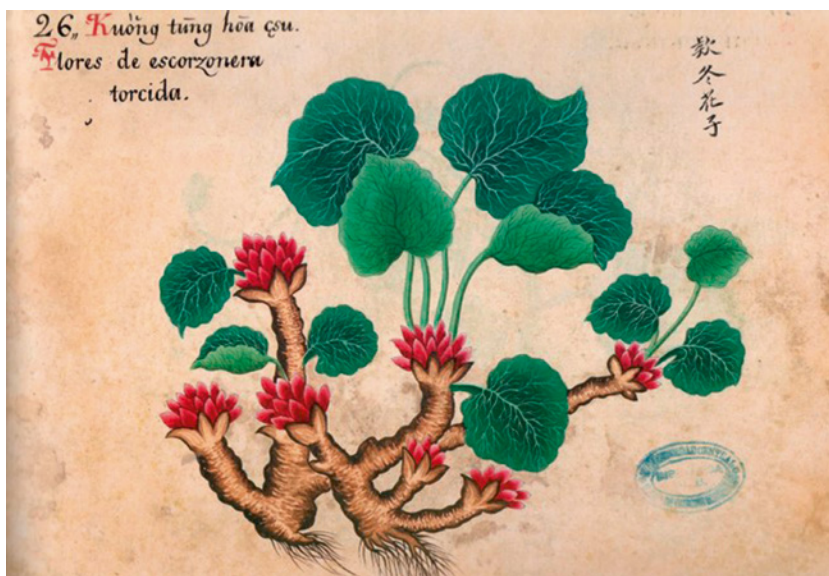 26,, Kuòng tūng hōa çsu.
Flores de escorzonera
torcida.
款冬花子